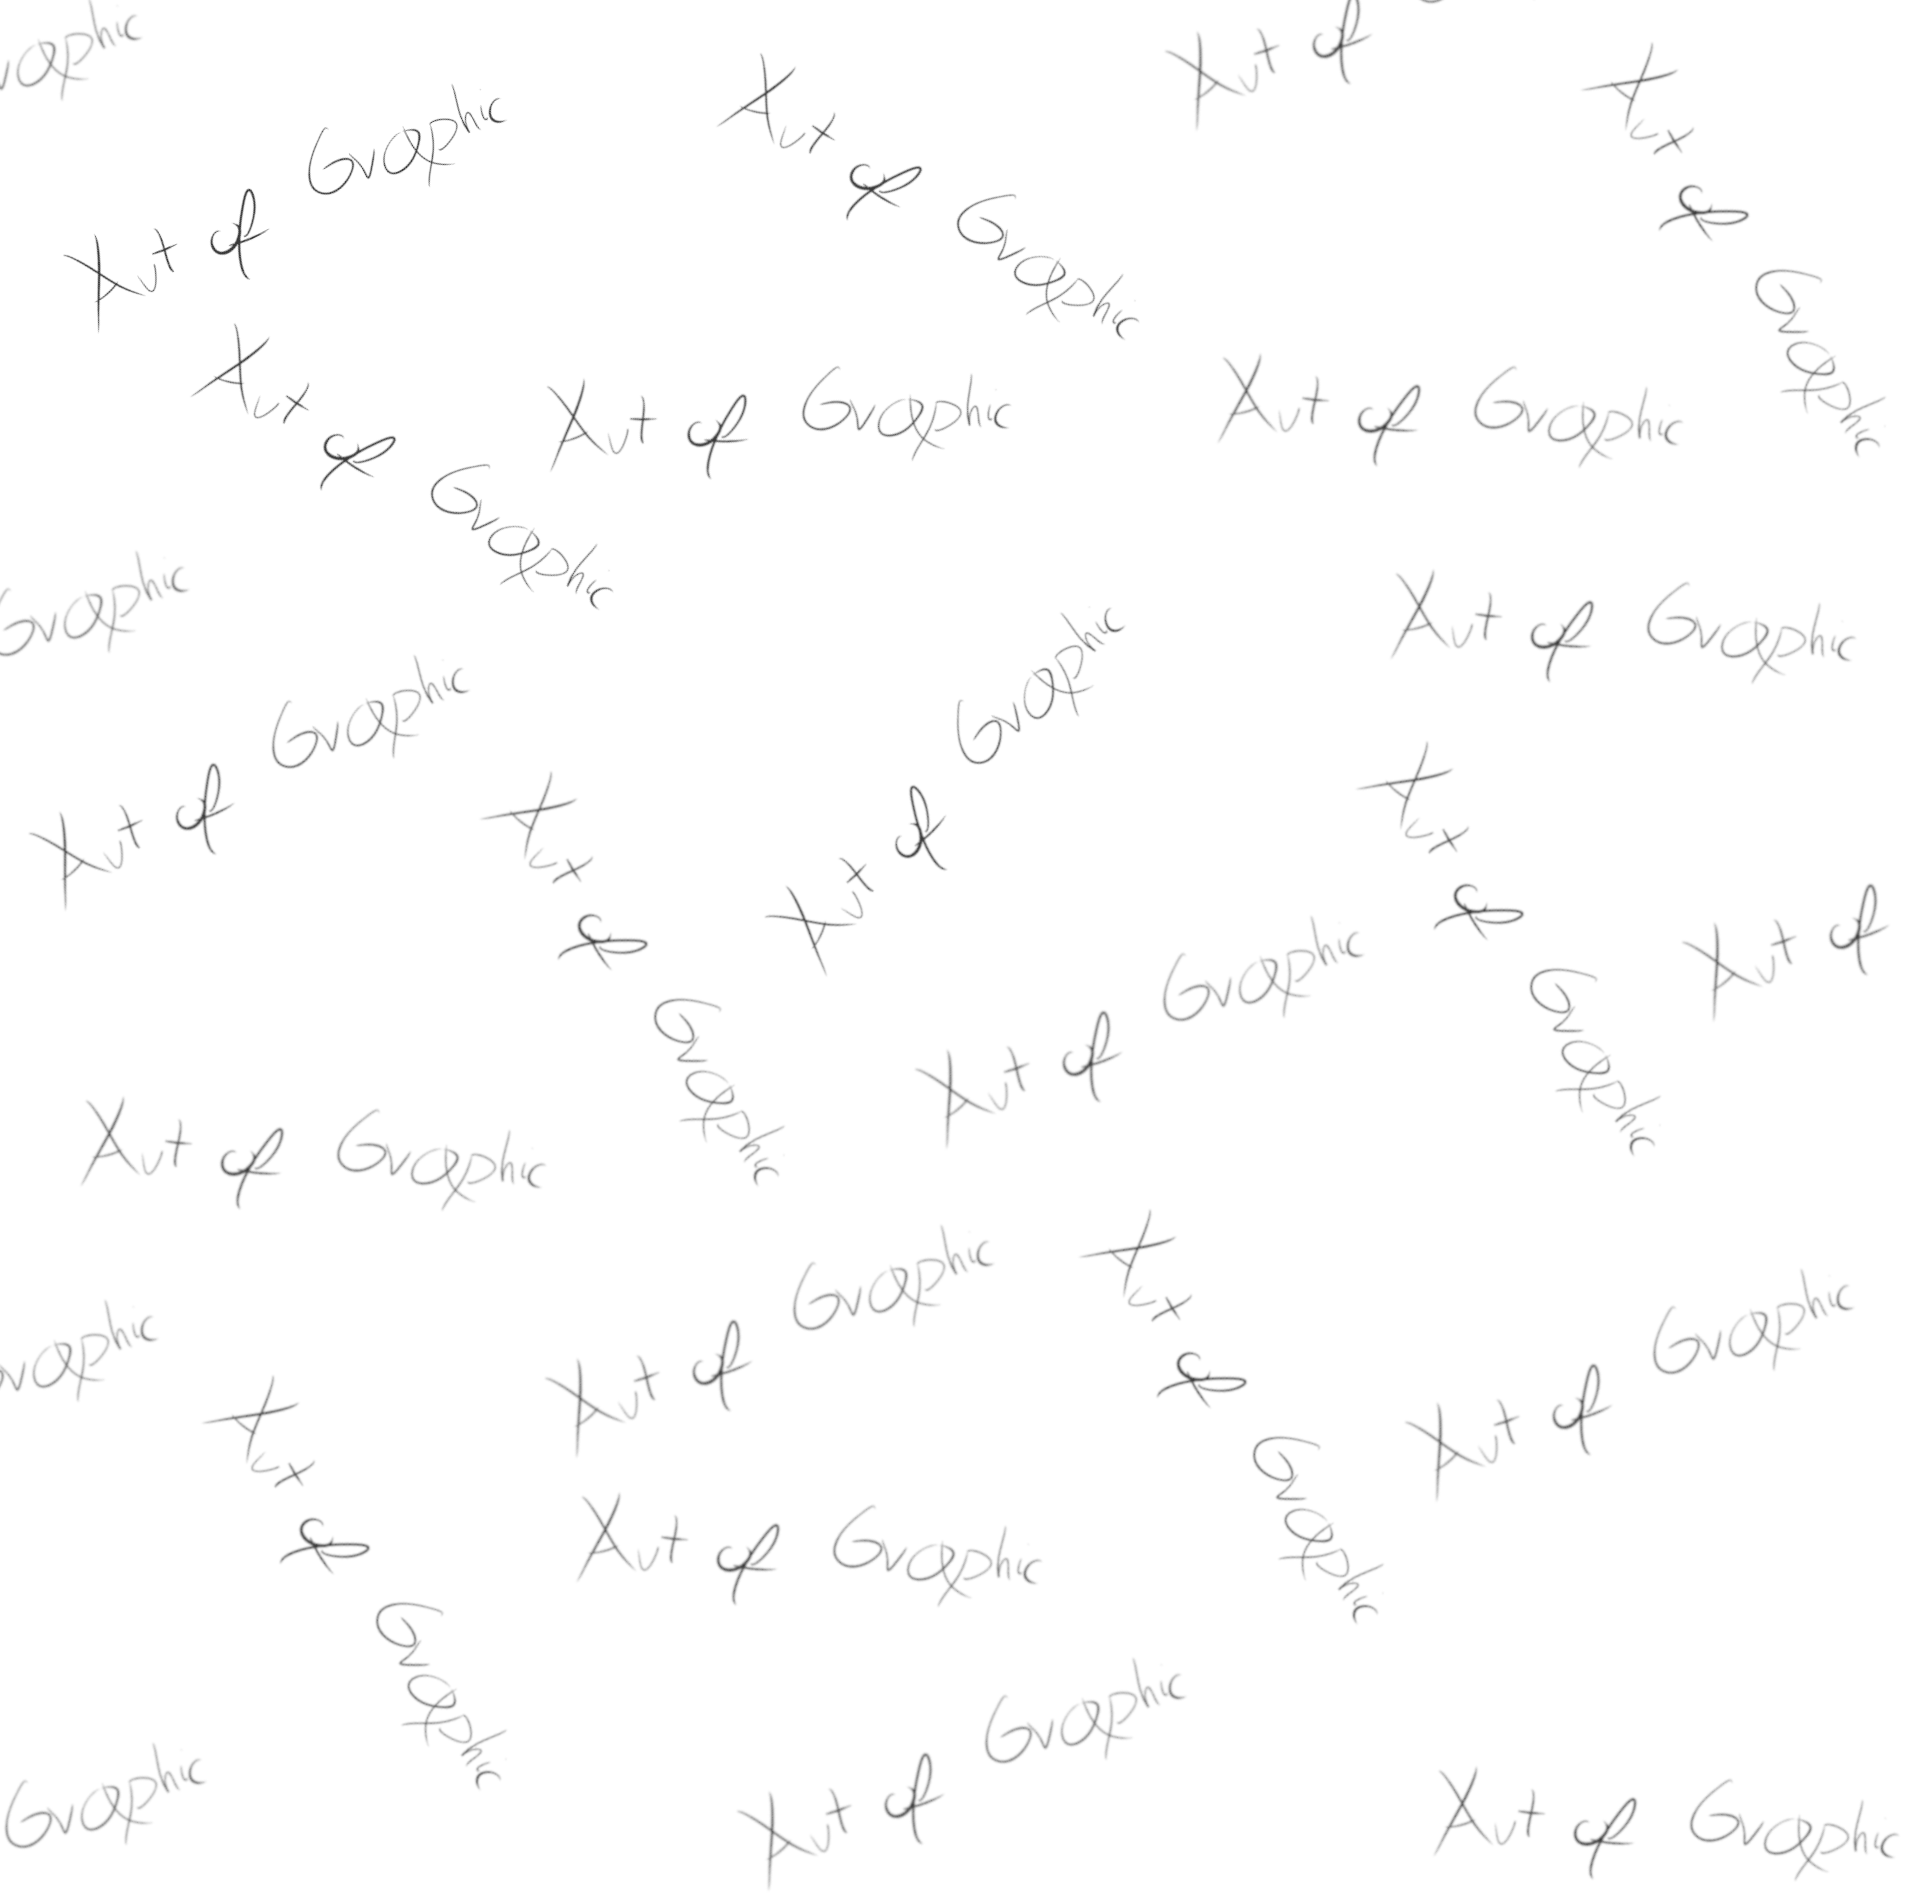 raphic
Art of
Art of Graphic
Art of Graphic
Art of Graphic
Art of Graphic
Art of Graphic
Art of Graphic
Graphic
Art of Graphic
Art of Graphic
Art of Graphic
Art of Graphic
Art of Graphic
Art of
Art of Graphic
Art of Graphic
Art of Graphic
raphic
Art of Graphic
Art of Graphic
Art of Graphic
Art of Graphic
Graphic
Art of Graphic
Art of Graphic